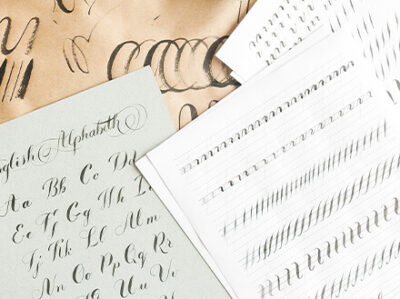 nglish Alphabeth
Aa Bb Cc Dd
Ee Ff Gg Hh Ii
Jj Kk Ll Mm
Nn Oo Pp Qq Rr
Uu Vv